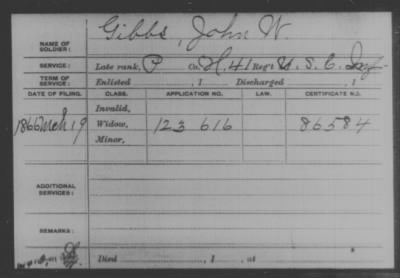 Gibbs, John W.
NAME OF SOLDIER:
SERVICE: Late rank, P Co. H. 41 Reg't U. S. C. Inf
TERM OF SERVICE: Enlisted , 1 Discharged , 1
DATE OF FILING. CLASS. APPLICATION NO. LAW. CERTIFICATE NO.
Invalid,
1866 Mch 19 Widow, 123 616 86584
Minor,
ADDITIONAL SERVICES:
REMARKS:
Died , 1 , at